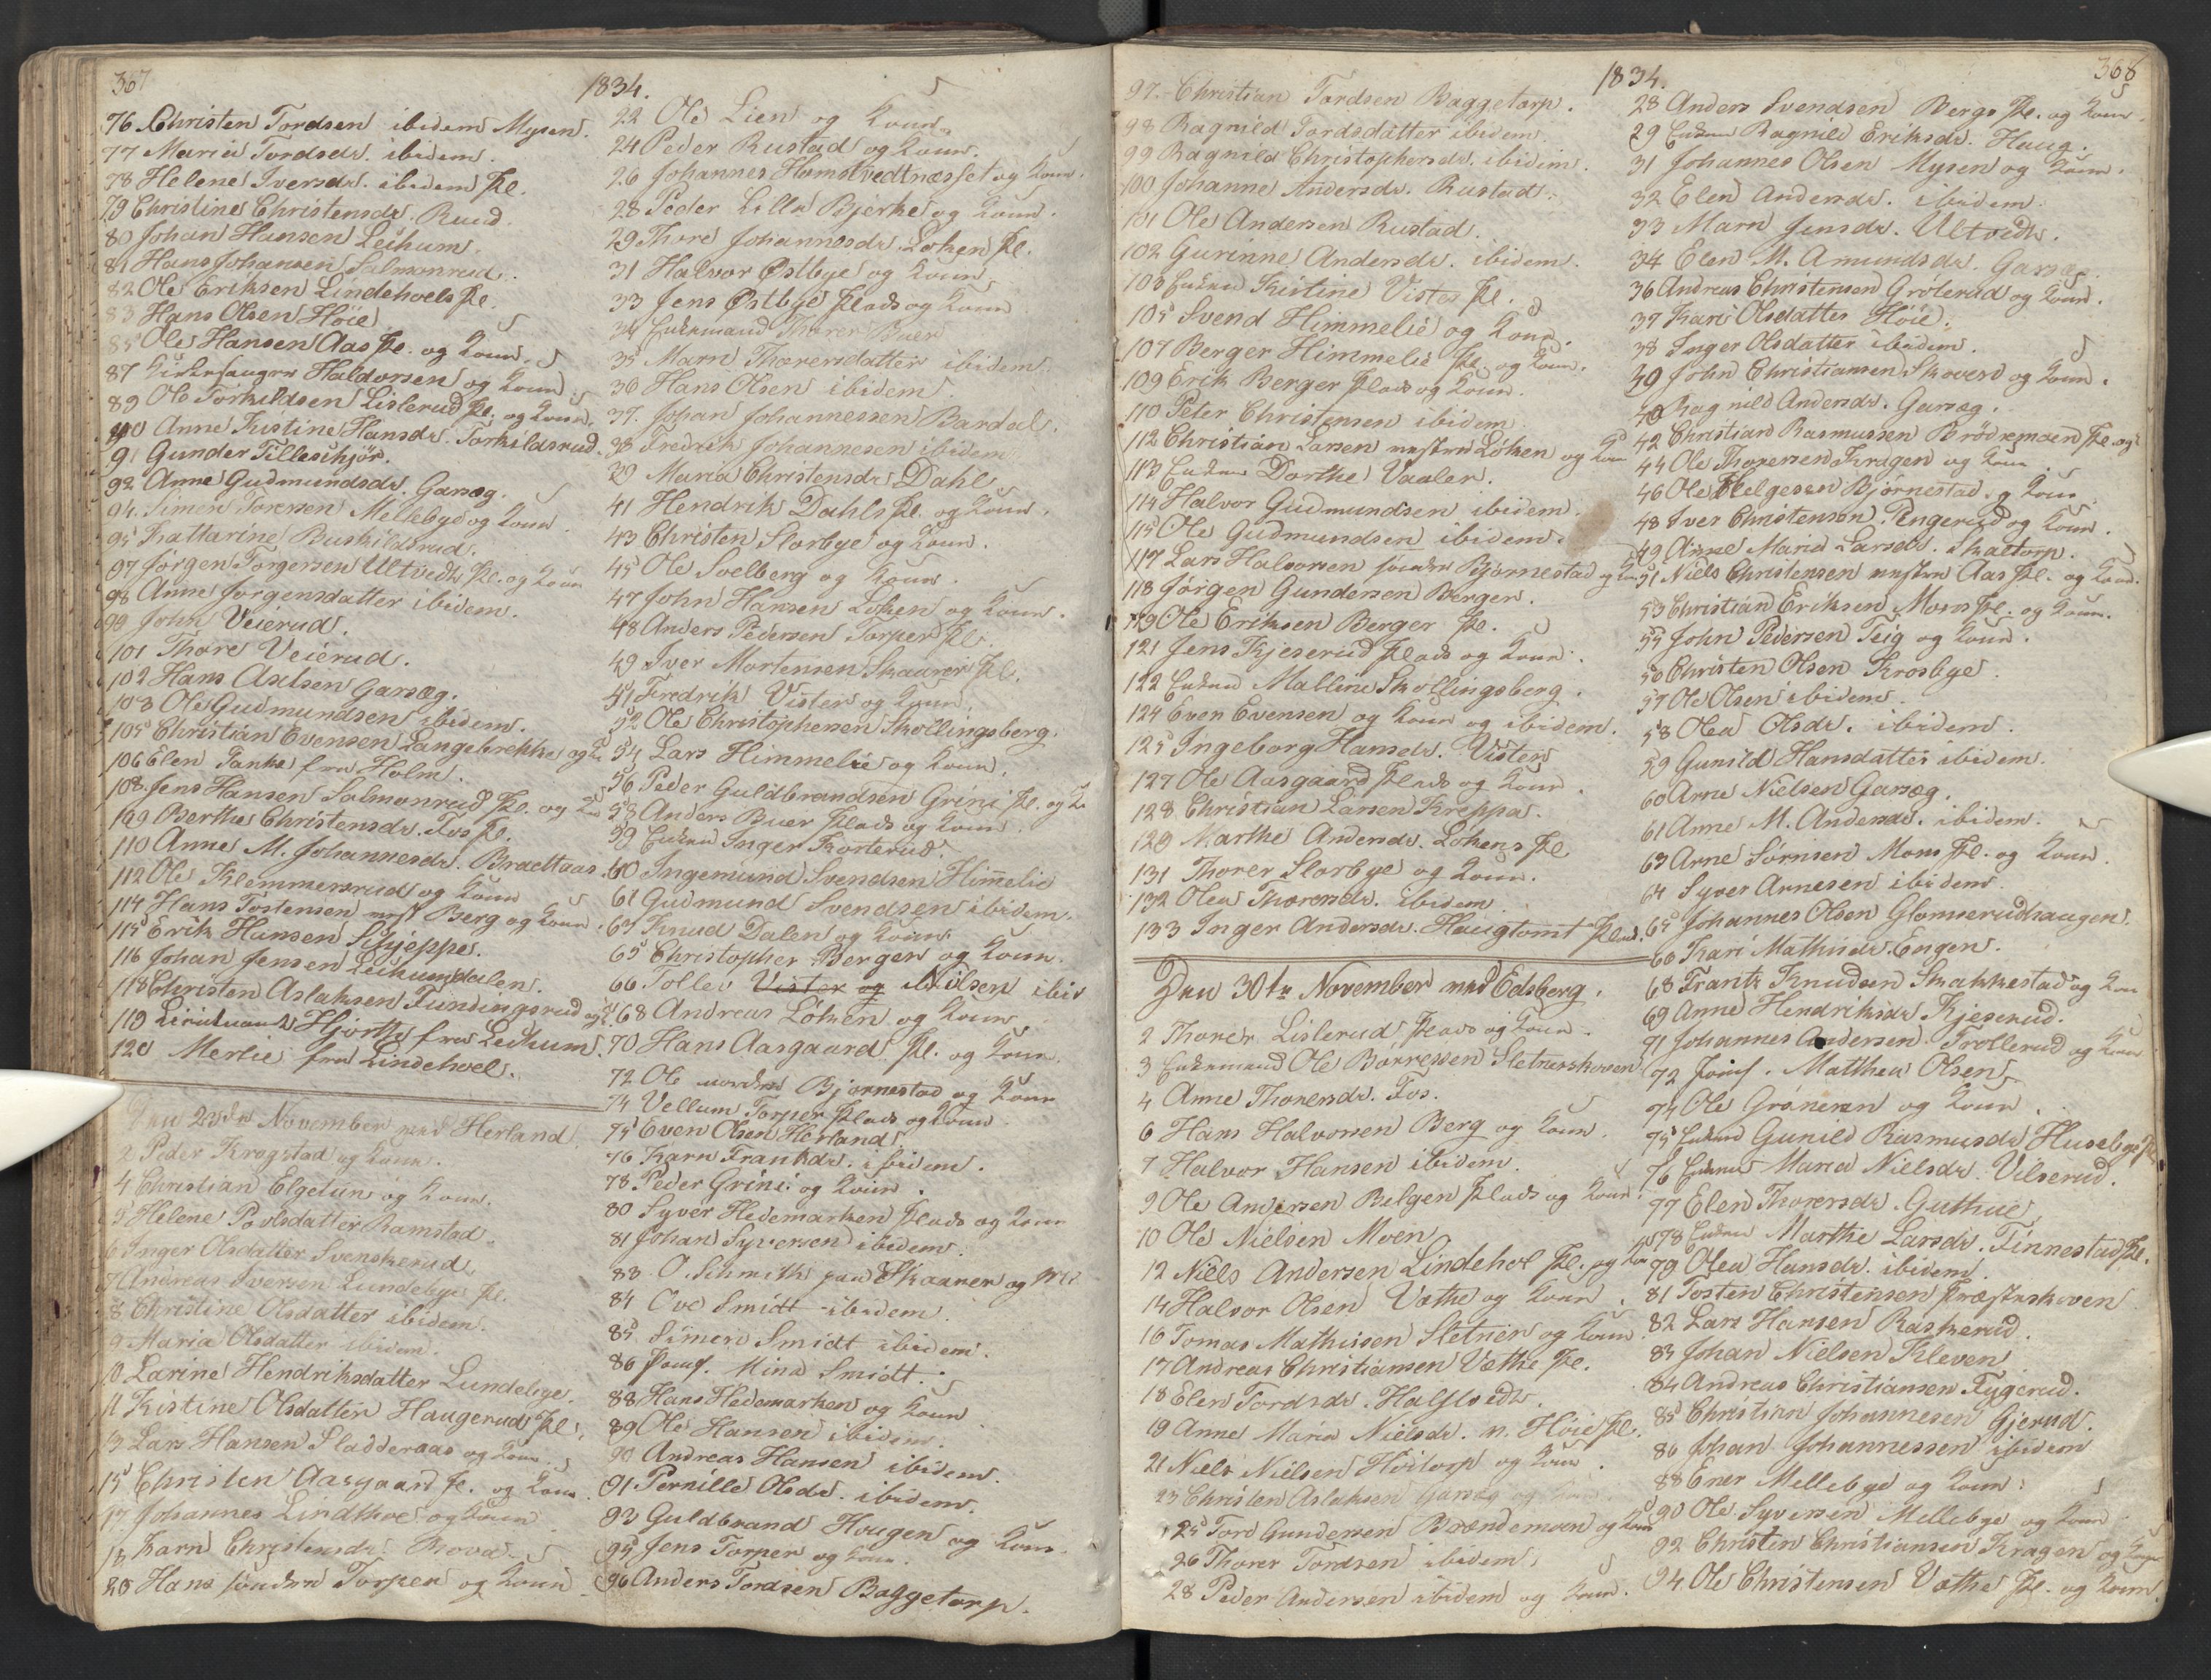 367
1834.
76 Christen Tordsen ibidem Mysen.
77 Maria Tordsdr. ibidem.
78 Helene Iversdr. ibidem Pl.
79 Christine Christensdr. Ruud.
80 Johan Hansen Leikum.
81 Hans Johansen Salmonrud.
82 Ole Eriksen Lindehoels Pl.
83 Hans Olsen Höie
85 Ole Hansen Aas Pl. og Kone.
87 Kirkesanger Haldorsen og Kone
89 Ole Torkildsen Lislerud Pl. og Kone.
90 Anne Kistine Hansdr. Torkildsrud.
91 Gunder Tilleskjör.
92 Anne Gudmundsdr. Garsæg.
94. Simen Toresen Mellebye og Kone
95 Kattarine Buskildsrud.
97 Jörgen Torgersen Ultvedts Pl. og Kone
98 Anne Jorgensdatter ibidem.
99 John Veierud.
101 Thore Veierud.
102 Hans Axelsen Garsæg.
103 Ole Gudmundsen ibidem.
105 Christian Evensen Langebrekke og K
106 Elen Tanke fra Holm.
108. Jens Hansen Salmonrud Pl. og Kone
109 Berthe Christensdr. Fos Pl.
110 Anne M. Johannesdr. Braattaas.
112 Ole Klemmersrud og Kone
114 Hans Tostensen west Berg og Kone.
115 Erik Hansen Schjeppe.
116 Johan Jensen Leikumdalen.
118 Christen Aslaksen Fundingsrud og K
119 Lieutnant Hjorth fra Leikum.
120 Merlie fra Lindehoel.
Den 23de November ved Herland
2 Peder Kragstad og Kone.
4 Christian Elgetun og Kone.
5 Helene Povlsdatter Ramstad.
6 Inger Olsdatter Svenskerud
7 Andreas Iversen Lundebye Pl.
8 Christine Olsdatter ibidem.
9 Maria Olsdatter ibidem.
10 Larine Hendriksdatter Lundebye
11 Kistine Olsdatter Haugerud Pl.
13 Lars Hansen Sladderaas og Kone.
15 Christen Aasgaard Pl. og Kone.
17 Johannes Lindthoe og Kone
18 Karn Christensdr. Roved.
20 Hans söndre Torper og Kone
22 Ole Lien og Kone
24 Peder Rustad og Kone.
26 Johannes Homstvedtnæsset og Kone.
28 Peder Lille Bjerke og Kone.
29 Thore Johannesdr. Löken Pl.
31 Halvor Østbye og Kone
33 Jens Østbye Plads og Kone
34 Enkemand Thorer Buer
35 Marn Thorersdatter ibidem
36 Hans Olsen ibidem.
37. Johan Johannessen Bardal.
38 Fredrik Johannesen ibidem
39 Maria Christensdr. Dahl
41 Hendrik Dahls Pl. og Kone.
43 Christen Slorbye og Kone.
45 Ole Solberg og Kone.
47 John Hansen Löken og Kone.
48 Anders Pedersen Torper Pl.
49 Iver Mortensen Skaurer Pl.
51 Fredrik Vister og Kone.
52 Ole Christophersen Skollingsberg.
54 Lars Himmelie og Kone.
56 Peder Guldbrandsen Grini Pl. og K
58 Anders Buer Plads og Kone.
59 Enken Inger Korterud.
60 Ingemund Svendsen Himelie
61 Gudmund Svendsen ibidem.
63 Knud Dalen og Kone
65 Christopher Berger og Kone.
66 Tollev Vister og Nilsen ibid
68 Andreas Löken og Kone
70 Hans Aasgaard Pl. og Kone.
72 Ole nordre Bjørnestad og Kone
74 Vellum Torper Plads og Kone
75 Even Olsen Herland
76 Karn Frantzdr. ibidem.
78 Peder Grini og Kone.
80 Syver Hedemarken Plads og Kone
81 Johan Syversen ibidem.
83 O. Schmith paa Skaaner og
84 Ove Smidt ibidem
85 Simen Smidt ibidem.
86 Jomf. Mina Smidt.
88 Hans Hedemarken og Kone
89 Ole Hansen ibidem.
90 Andreas Hansen ibidem.
91 Pernille Olsdr. ibidem
93 Guldbrand Hougen og Kone.
95 Jens Torper og Kone.
96 Anders Tordsen Baggetorp.
1834.
368
97. Christian Tordsen Baggetorp.
98 Ragnild Tordsdatter ibidem.
99 Ragnild Christophersdr. ibidem.
100 Johanne Andersdr. Rustad.
101 Ole Andersen Rustad.
102 Gurinne Andersdr. ibidem.
103 Enken Kistine Vister Pl.
105 Svend Himmelie og Kone.
107 Berger Himmelie Pl. og Kone.
109 Erik Berger Plads og Kone.
110 Peter Christensen ibidem
112 Christian Larsen westre Löken og Kone
113 Enken Dorthe Vaaler.
114 Halvor Gudmundsen ibidem.
115 Ole Gudmundsen ibidem.
117 Lars Halvorsen söndre Bjørnestad og K
118 Jörgen Gundersen Berger.
119 Ole Eriksen Berger Pl.
121 Jens Kjeserud Plads og Kone.
122 Enken Malline Skollingsberg.
124 Even Evensen og Kone og ibidem.
125 Ingeborg Hansdr. Vister
127 Ole Aasgaard Plads og Kone.
128 Christian Larsen Kreppa.
129 Marthe Andersdr. Lökens Pl.
131 Thorer Slorbye og Kone.
132 Olea Thorersdr. ibidem
133 Inger Andersdr. Haugtomt Plads.
Den 30te November ved Edsberg.
2 Thorer Lislerud Plads og Kone.
3 Enkemand Ole Börresen Sletnerskoven
4 Anne Thorersdr. Fos.
6 Hans Halvorsen Berg og Kone.
7 Halvor Hansen ibidem.
9 Ole Andersen Belgen Plads og Kone.
10 Ole Nielsen Moen
12 Niels Andersen Lindehol Pl. og Kone
14 Halvor Olsen Vathe og Kone.
16 Tomas Mathisen Sletner og Kone
17 Andreas Christiansen Vathe Pl.
18 Elen Tordsdr. Halfsedt.
19 Anne Maria Nielsdr. n. Höie Pl.
21 Niels Nielsen Höitorp og Kone.
23 Christen Aslaksen Garsæg og Kone.
25 Tord Gundersen Brændemoen og Kone
26 Thorer Tordsen ibidem.
28 Peder Andersen ibidem og Kone.
28 Anders Svendsen Bergs Pl. og Kone
29 Enken Ragnild Eriksdr. Haug.
31 Johannes Olsen Mysen og Kone.
32 Elen Andersdr. ibidem.
33 Marn Jensdr. Ultvedt.
34 Elen M. Amundsdr. Garsæg.
36 Andreas Christensen Grölerud og Kone.
37 Kari Olsdatter Höie.
38 Inger Olsdatter ibidem.
39 John Christiansen Skovero og Kone.
40 Ragnild Andersdr. Garsæg.
42 Christian Rasmussen Brödremoen Pl. og
44 Ole Thoresen Kragen og Kone
46 Ole Helgesen Bjørnestad og Kone
48 Iver Christensen Pengerud og Kone.
49 Anne Maria Larsdr. Skaltorp.
51 Niels Christensen westre Aas Pl. og Kone.
53 Christian Eriksen Mons Pl. og Kone.
55 John Pedersen Teig og Kone.
56 Christen Olsen Krosbye.
57 Ole Olsen ibidem.
58 Olea Olsdr. ibidem.
59 Gunild Hansdatter ibidem.
60 Arne Nielsen Garsæg.
61 Anne M. Andersdr. ibidem.
63 Arne Sörnsen Mons Pl. og Kone.
64 Syver Arnesen ibidem.
65 Johannes Olsen Glomserudhaugen.
66 Kari Mathisdr. Engen.
68 Frantz Knudsen Skakkestad og Kone
69 Anne Hendriksdr Kjeserud.
71 Johannes Andersen Trollerud og Kone
72 Jomf. Matthea Olsen
74 Ole Gröneren og Kone.
75 Enken Gunild Rasmusdr Husebye Pl
76 Enken Maria Nielsdr. Vilserud.
77 Elen Thorersdr. Guthue
78 Enken Marthe Larsdr. Tinnestad Pl.
79 Olea Hansdr. ibidem.
81 Tosten Christensen Præsteskoven
82 Lars Hansen Raskerud.
83 Johan Nielsen Kleven
84 Andreas Christiansen Tygerud.
85 Christian Johannesen Gjerud.
86 Johan Johannessen ibidem
88 Ener Mellebye og Kone.
90 Ole Syversen Mellebye og Kone
92 Christen Christiansen Kragen og Kone
94 Ole Christensen Vathe Pl. og Kone.